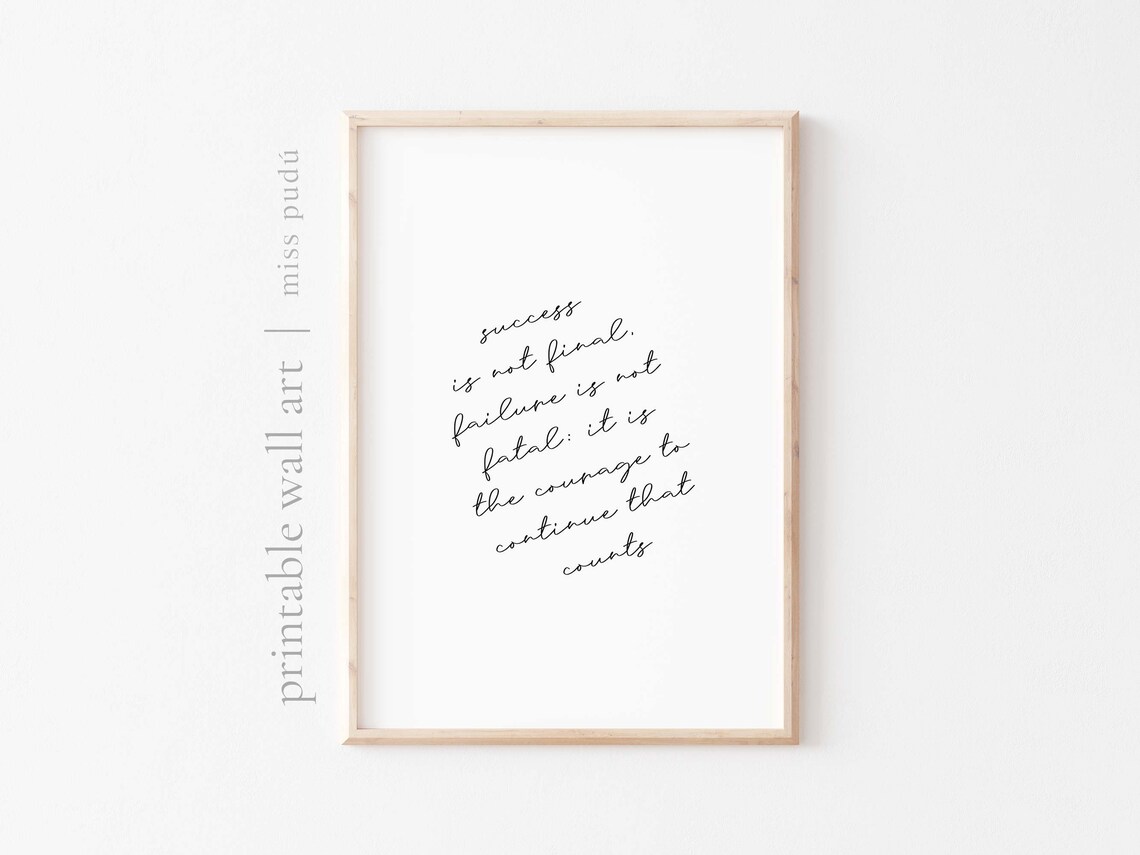 printable wall art | miss pudú
success
is not final,
failure is not
fatal: it is
the courage to
continue that
counts